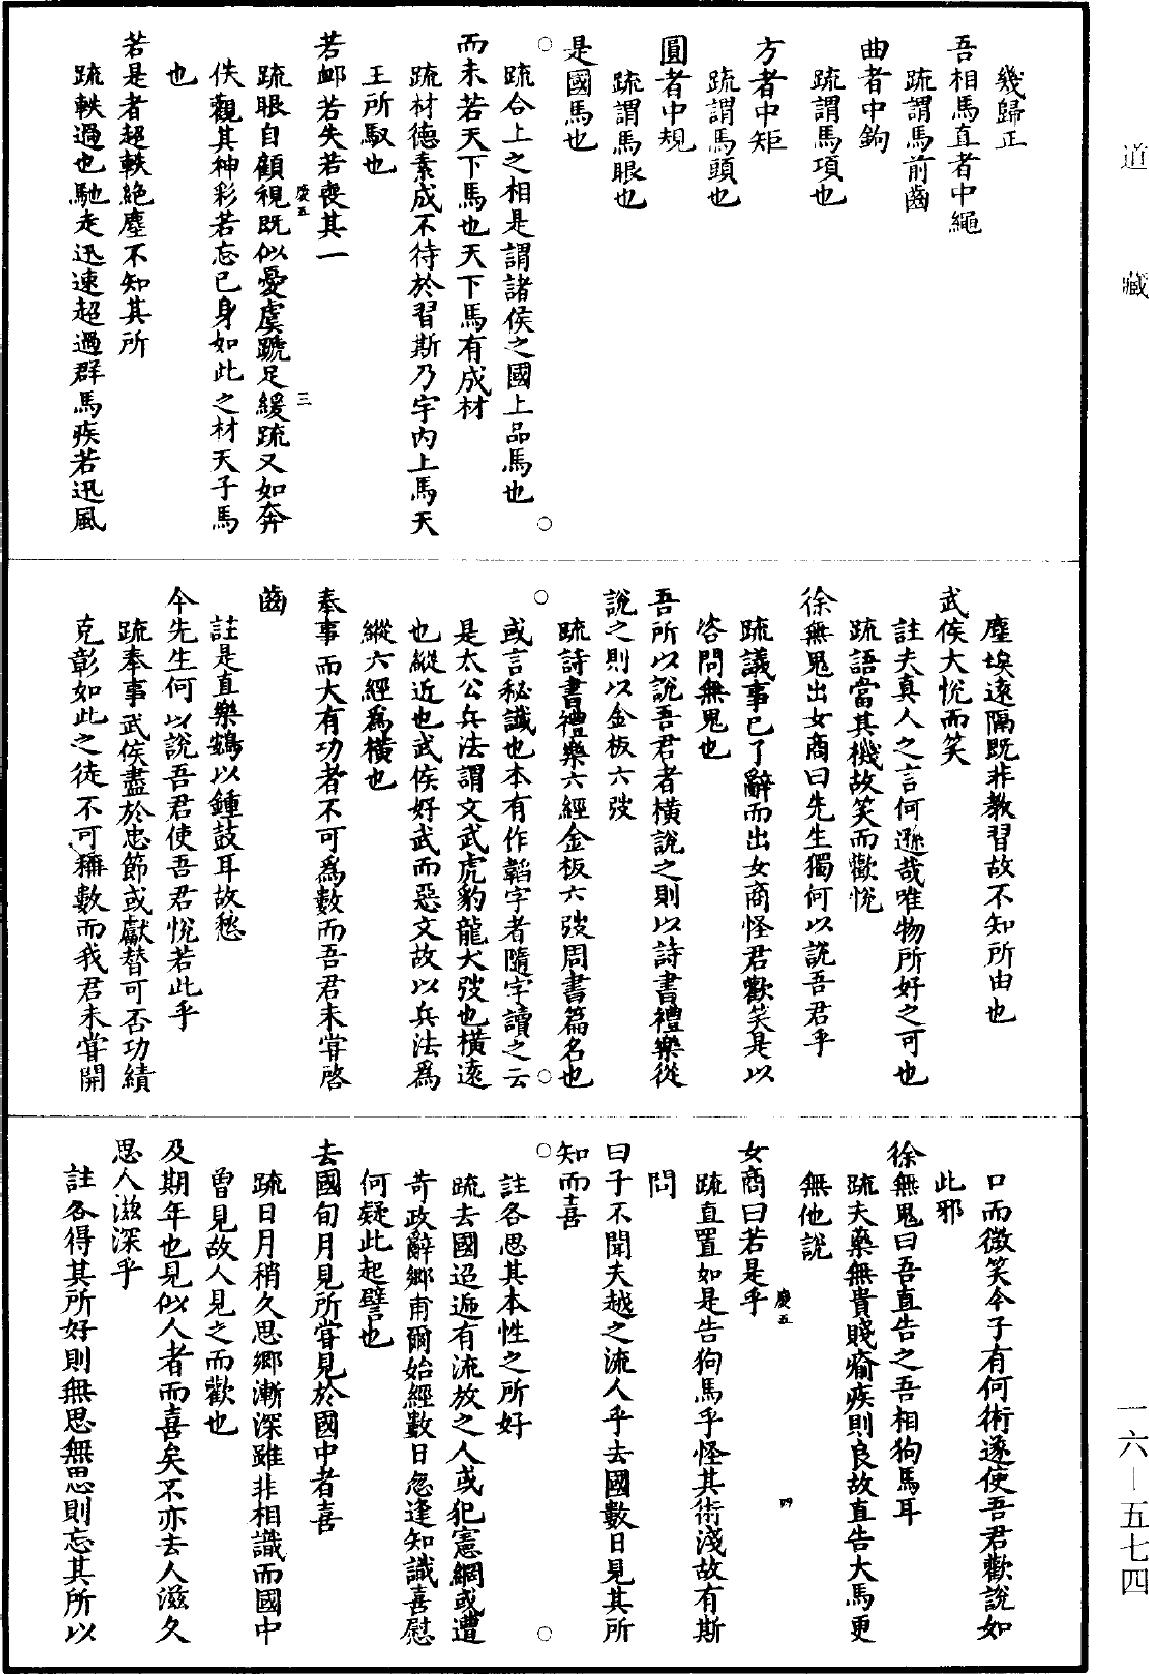 道藏
幾歸正
吾相馬直者中繩
疏謂馬前齒
曲者中鉤
疏謂馬項也
方者中矩
疏謂馬頭也
圓者中規
疏謂馬眼也
是國馬也
疏合上之相是謂諸侯之國上品馬也
而未若天下馬也天下馬有成材
疏材德素成不待於習斯乃宇內上馬天
王所馭也
若䘏若失若喪其一
慶五 三
疏眼自顧視既似憂虞蹏足緩疏又如奔
佚觀其神彩若忘已身如此之材天子馬
也
若是者超軼絕塵不知其所
疏軼過也馳走迅速超過群馬疾若迅風
塵埃遠隔既非教習故不知所由也
武侯大悅而笑
註夫真人之言何遜哉唯物所好之可也
疏語當其機故笑而歡悅
徐無鬼出女商曰先生獨何以說吾君乎
疏議事已了辭而出女商怪君歡笑是以
咨問無鬼也
吾所以說吾君者橫說之則以詩書禮樂從
說之則以金板六弢
疏詩書禮樂六經金板六弢周書篇名也
或言秘讖也本有作韜字者隨字讀之云
是太公兵法謂文武虎豹龍犬弢也橫遠
也縱近也武侯好武而惡文故以兵法為
縱六經為橫也
奉事而大有功者不可為數而吾君未嘗啓
齒
註是直樂鷃以鍾鼓耳故愁
今先生何以說吾君使吾君悅若此乎
疏奉事武侯盡於忠節或獻替可否功績
克彰如此之徒不可稱數而我君未甞開
口而微笑今子有何術遂使吾君歡說如
此邪
徐無鬼曰吾直告之吾相狗馬耳
疏夫藥無貴賤瘉疾則良故直告犬馬更
無他說
女商曰若是乎
慶五 四
疏直置如是告狗馬乎怪其術淺故有斯
問
曰子不聞夫越之流人乎去國數日見其所
知而喜
註各思其本性之所好
疏去國迢遞有流放之人或犯憲網或遭
苛政辭鄉甫爾始經數日忽逢知識喜慰
何疑此起譬也
去國旬月見所甞見於國中者喜
疏日月稍久思鄉漸深雖非相識而國中
曾見故人見之而歡也
及期年也見似人者而喜矣不亦去人滋久
思人滋深乎
註各得其所好則無思無思則忘其所以
一六—五七四